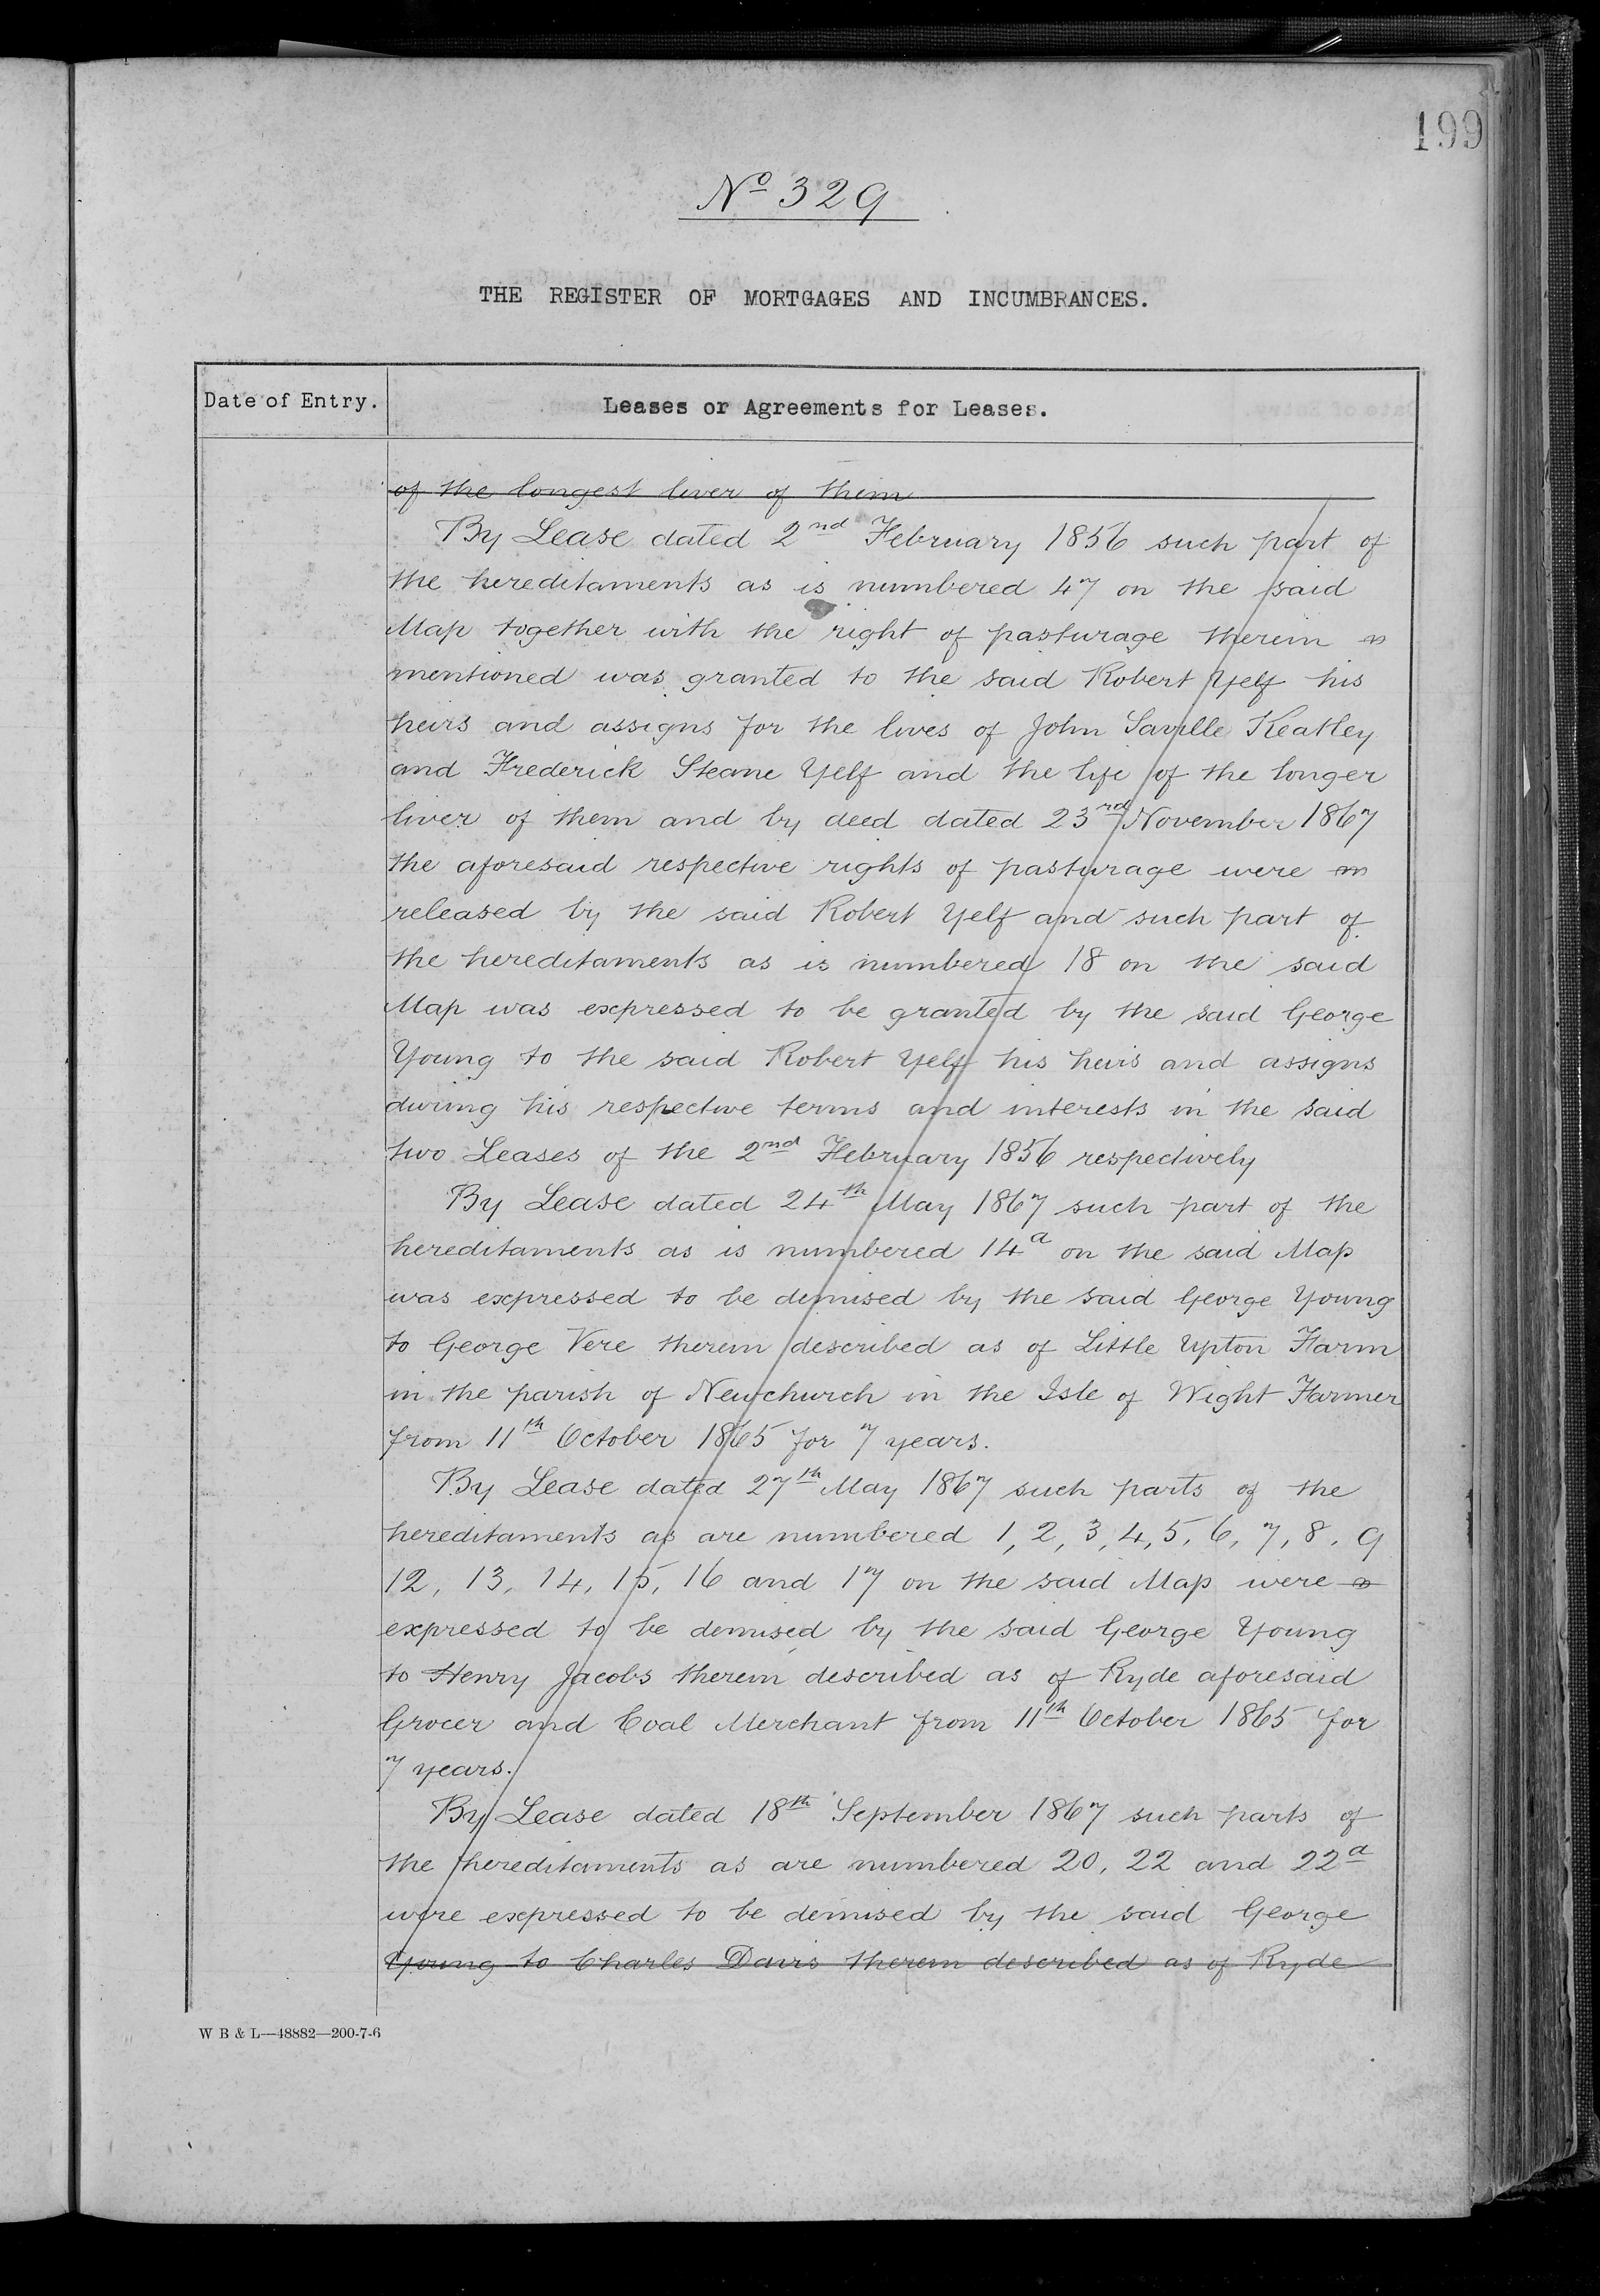 199
No 329
THE REGISTER OF MORTGAGES AND INCUMBRANCES.
Date of Entry.
Leases or Agreements for Leases.
of the longest liver of them
By Lease dated 2nd February 1856 such part of
the hereditaments as is numbered 47 on the said
Map together with the right of pasturage therein
mentioned was granted to the said Robert Yelf his
heirs and assigns for the lives of John Saville Keatley
and Frederick Steane Yelf and the life of the longer
liver of them and by deed dated 23rd November 1867
the aforesaid respective rights of pasturage were
released by the said Robert Yelf and such part of
the hereditaments as is numbered 18 on the said
Map was expressed to be granted by the said George
Young to the said Robert Yelf his heirs and assigns
during his respective terms and interests in the said
two Leases of the 2nd February 1856 respectively
By Lease dated 24th May 1867 such part of the
hereditaments as is numbered 14a on the said Map
was expressed to be demised by the said George Young
to George Vere therein described as of Little Upton Farm
in the parish of Newchurch in the Isle of Wight Farmer
from 11th October 1865 for 7 years.
By Lease dated 27th May 1867 such parts of the
hereditaments as are numbered 1, 2, 3, 4, 5, 6, 7, 8, 9
12, 13, 14, 15, 16 and 17 on the said Map were
expressed to be demised by the said George Young
to Henry Jacobs therein described as of Ryde aforesaid
Grocer and Coal Merchant from 11th October 1865 for
7 years.
By Lease dated 18th September 1867 such parts of
the hereditaments as are numbered 20, 22 and 22a
were expressed to be demised by the said George
Young to Charles Davis therein described as of Ryde
W B & L—48882—200-7-6